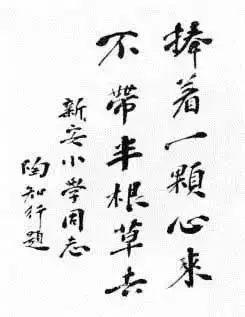 捧着一顆心來
不帶半根草去
新安小学同志
陶知行題